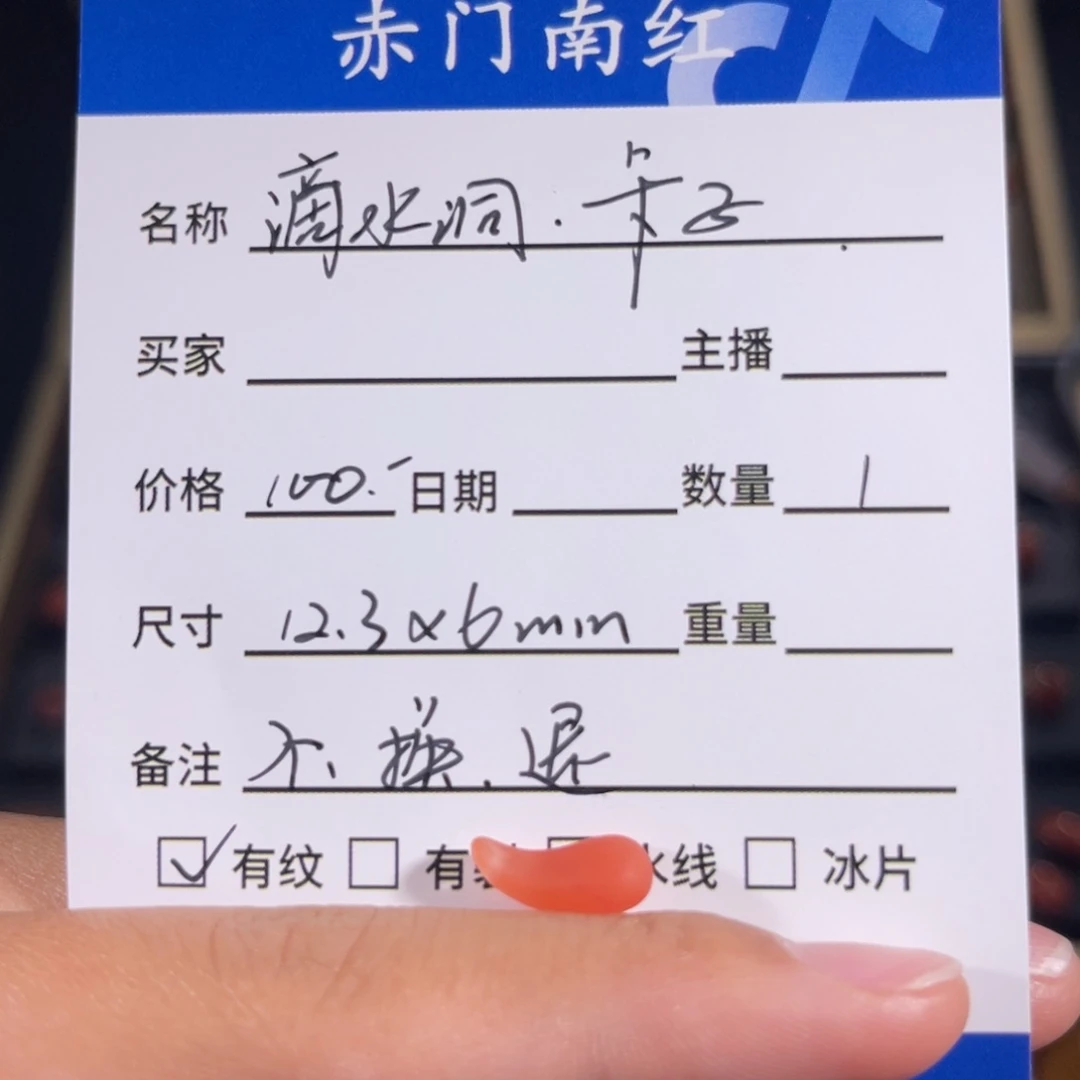 赤门南红
名称 滴水洞.卡子
买家 主播
价格 100.- 日期 数量 1
尺寸 12.3×6mm 重量
备注 不、换.退
有纹 有 水线 冰片